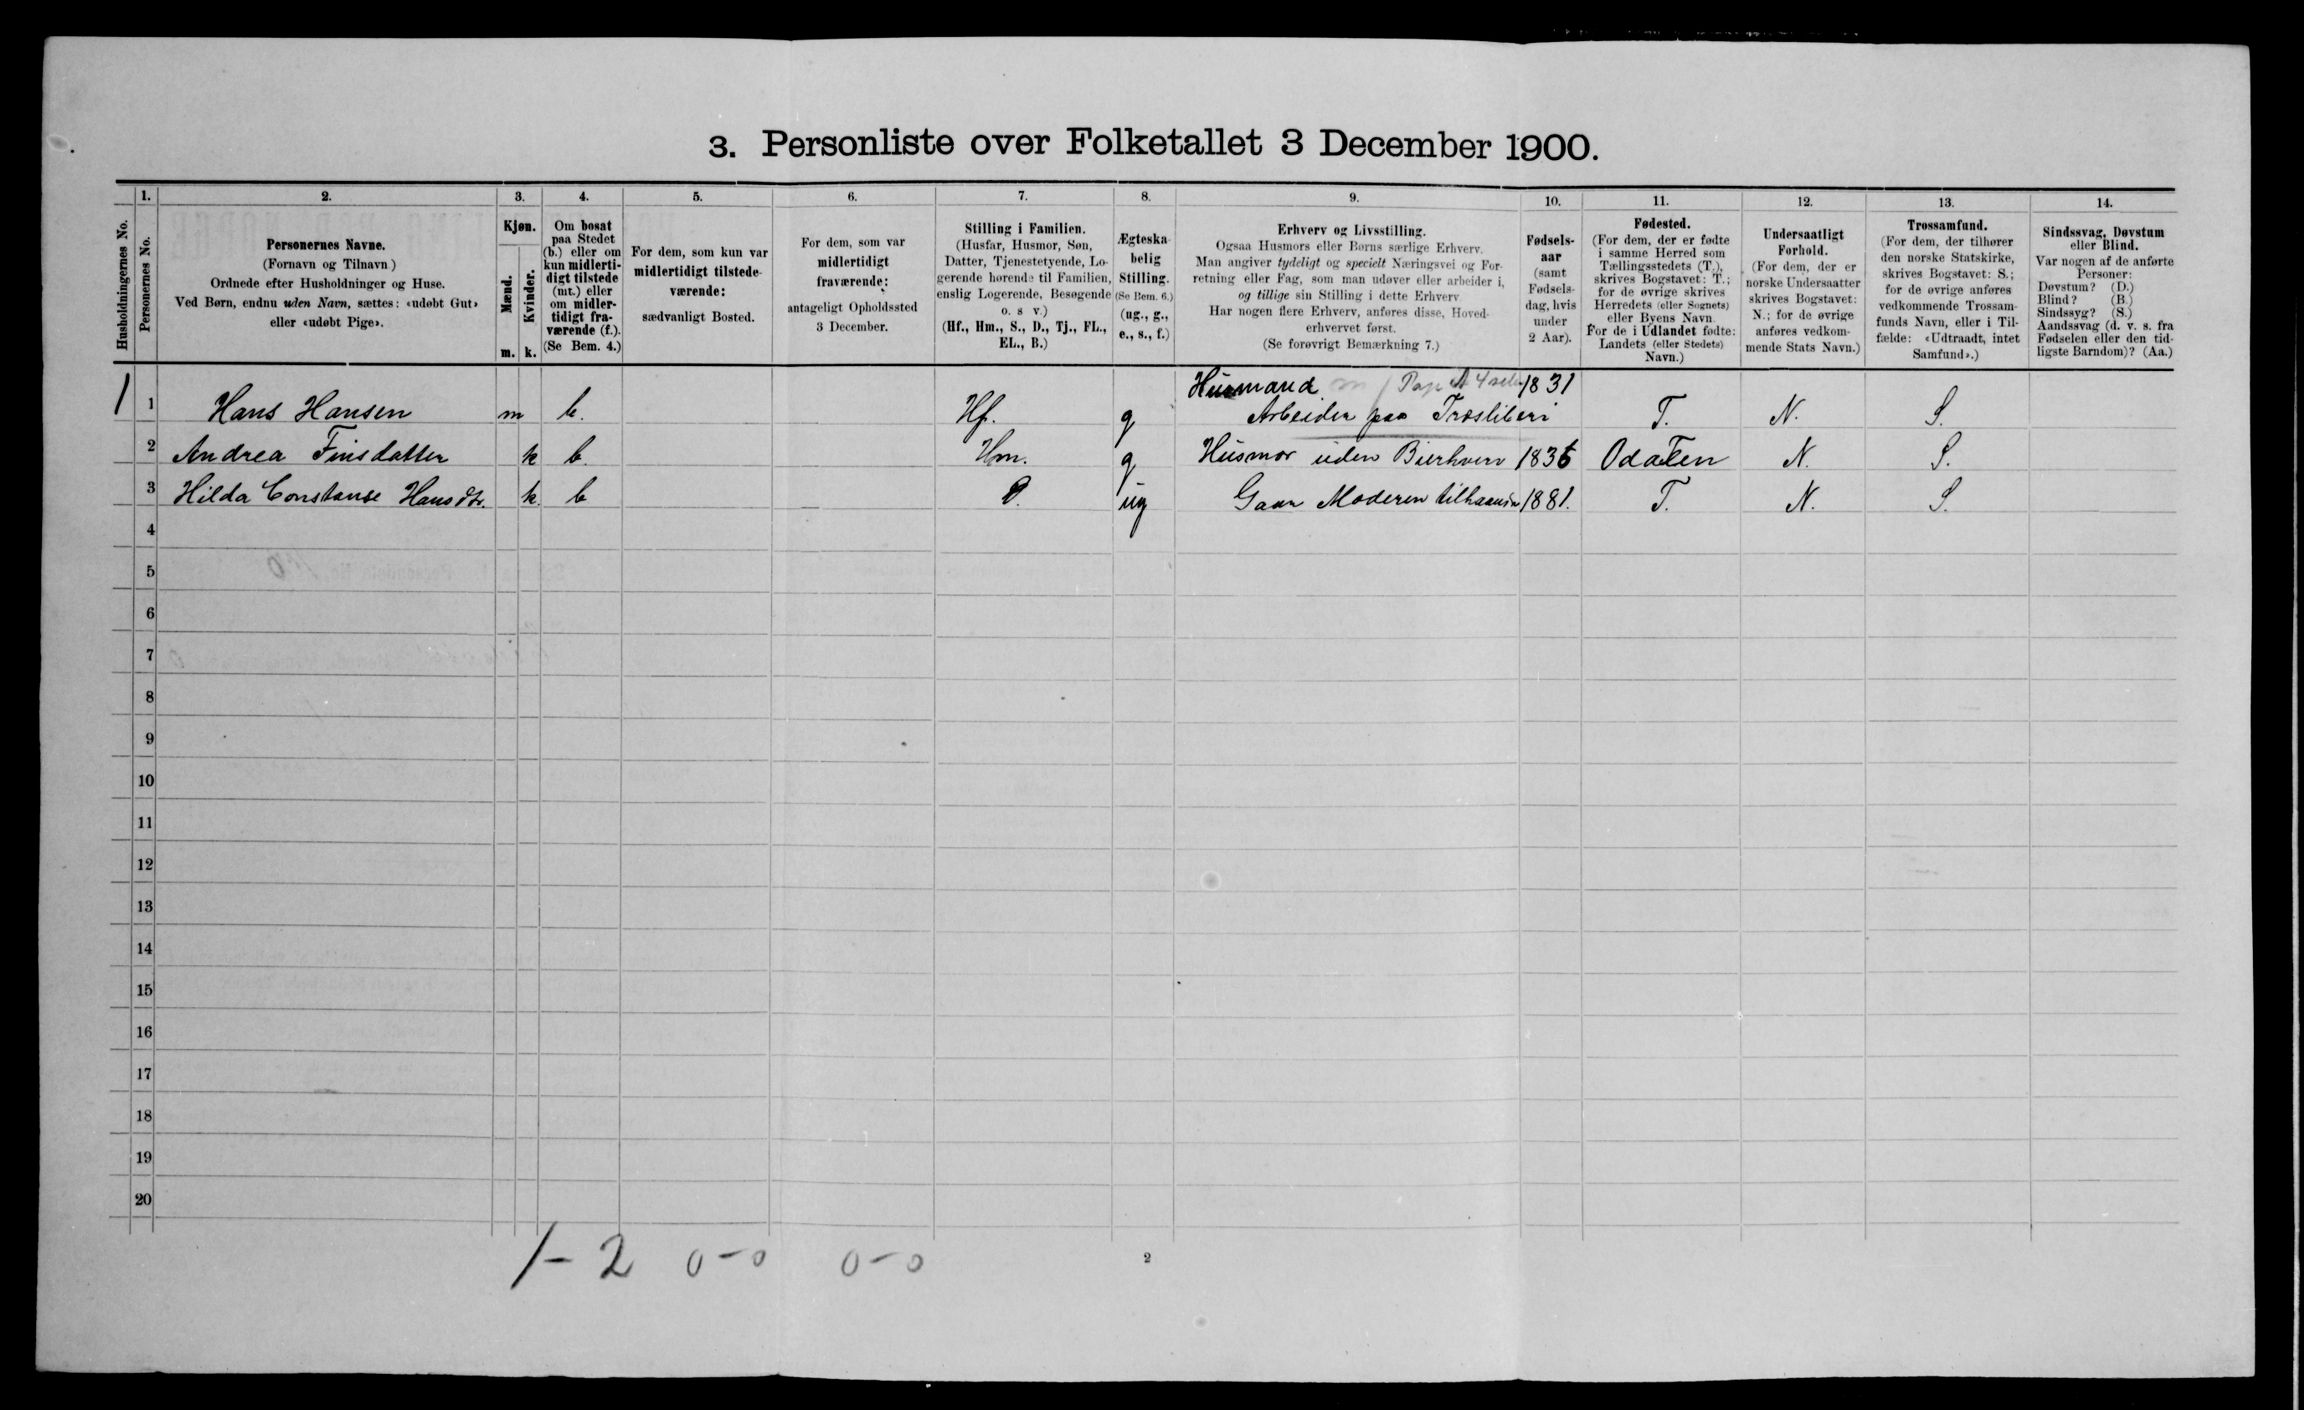 3. Personliste over Folketallet 3 December 1900.
1. 2. 3. 4. 5. 6. 7. 8. 9. 10. 11. 12. 13. 14.
Husholdningernes No.
Personernes No.
Personernes Navne.
(Fornavn og Tilnavn)
Ordnede efter Husholdninger og Huse.
Ved Børn, endnu uden Navn, sættes: «udøbt Gut»
eller «udøbt Pige».
Kjøn.
Mænd.
Kvinder.
m. k.
Om bosat
paa Stedet
(b.) eller om
kun midlerti-
digt tilstede
(mt.) eller
om midler-
tidigt fra-
værende (f.).
(Se Bem. 4.)
For dem, som kun var
midlertidigt tilstede-
værende:
sædvanligt Bosted.
For dem, som var
midlertidigt
fraværende:
antageligt Opholdssted
3 December.
Stilling i Familien.
(Husfar, Husmor, Søn,
Datter, Tjenestetyende, Lo-
gerende hørende til Familien,
enslig Logerende, Besøgende
o. s v.)
(Hf., Hm., S., D., Tj., FL.,
EL., B.)
Ægteska-
belig
Stilling.
(Se Bem. 6.)
(ug., g.,
e., s., f.)
Erhverv og Livsstilling.
Ogsaa Husmors eller Børns særlige Erhverv.
Man angiver tydeligt og specielt Næringsvei og For-
retning eller Fag, som man udøver eller arbeider i,
og tillige sin Stilling i dette Erhverv.
Har nogen flere Erhverv, anføres disse, Hoved-
erhvervet først.
(Se forøvrigt Bemærkning 7.)
Fødsels-
aar
(samt
Fødsels-
dag, hvis
under
2 Aar).
Fødested.
(For dem, der er fødte
i samme Herred som
Tællingsstedets (T.),
skrives Bogstavet: T.;
for de øvrige skrives
Herredets (eller Sognets)
eller Byens Navn.
For de i Udlandet fødte:
Landets (eller Stedets)
Navn.)
Undersaatligt
Forhold.
(For dem, der er
norske Undersaatter
skrives Bogstavet:
N.; for de øvrige
anføres vedkom-
mende Stats Navn.)
Trossamfund.
(For dem, der tilhører
den norske Statskirke,
skrives Bogstavet: S.;
for de øvrige anføres
vedkommende Trossam-
funds Navn, eller i Til-
fælde: «Udtraadt, intet
Samfund».)
Sindssvag, Døvstum
eller Blind.
Var nogen af de anførte
Personer:
Døvstum? (D.)
Blind? (B.)
Sindssyg? (S.)
Aandssvag (d. v. s. fra
Fødselen eller den tid-
ligste Barndom)? (Aa.)
Husmand
1 1 Hans Hansen m b. Hf. g Arbeider paa Træsliberi 1831 T. N. S.
2 Andrea Finsdatter k b. Hm. g Husmor uden Bierhverv 1836 Odalen N. S.
3 Hilda Constanse Hansdtr. k. b D. ug Gaar Moderen tilhaande 1881. T. N. S.
4
5
6
7
8
9
10
11
12
13
14
15
16
17
18
19
20
1-2 0-0 0-0
2